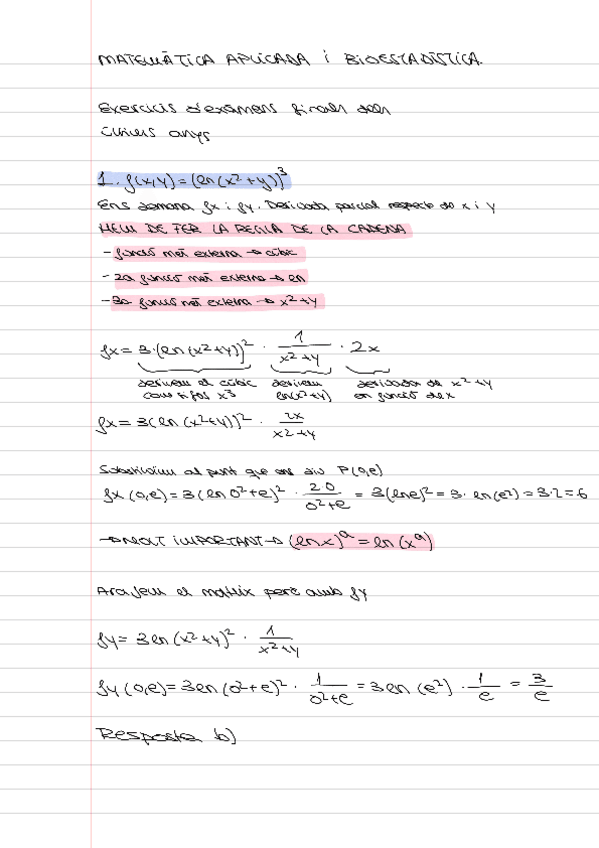 MATEMÀTICA APLICADA i BIOESTADÍSTICA.
Exercicis d'exàmens finals dels
últims anys
1. f(x,y) = (ln(x²+y))³
Ens demana fx i fy. Derivada parcial respecte de x i y
HEM DE FER LA REGLA DE LA CADENA
- funció més externa → cúbic
- 2a funció més externa → ln
- 3a funció més externa → x²+y
fx = 3·(ln(x²+y))² · 1/(x²+y) · 2x
derivem el cúbic com si fos x³ derivem ln(x²+y) derivada de x²+y en funció de x
fx = 3(ln(x²+y))² · 2x/(x²+y)
Substituïm al punt que ens diu P(0,e)
fx(0,e) = 3(ln 0²+e)² · 2·0/(0²+e) = 3(ln e)² = 3·ln(e²) = 3·2 = 6
→ MOLT IMPORTANT → (ln x)ᵃ = ln(xᵃ)
Ara fem el mateix però amb fy
fy = 3 ln(x²+y)² · 1/(x²+y)
fy(0,e) = 3 ln(0²+e)² · 1/(0²+e) = 3 ln(e²) · 1/e = 3/e
Resposta b)